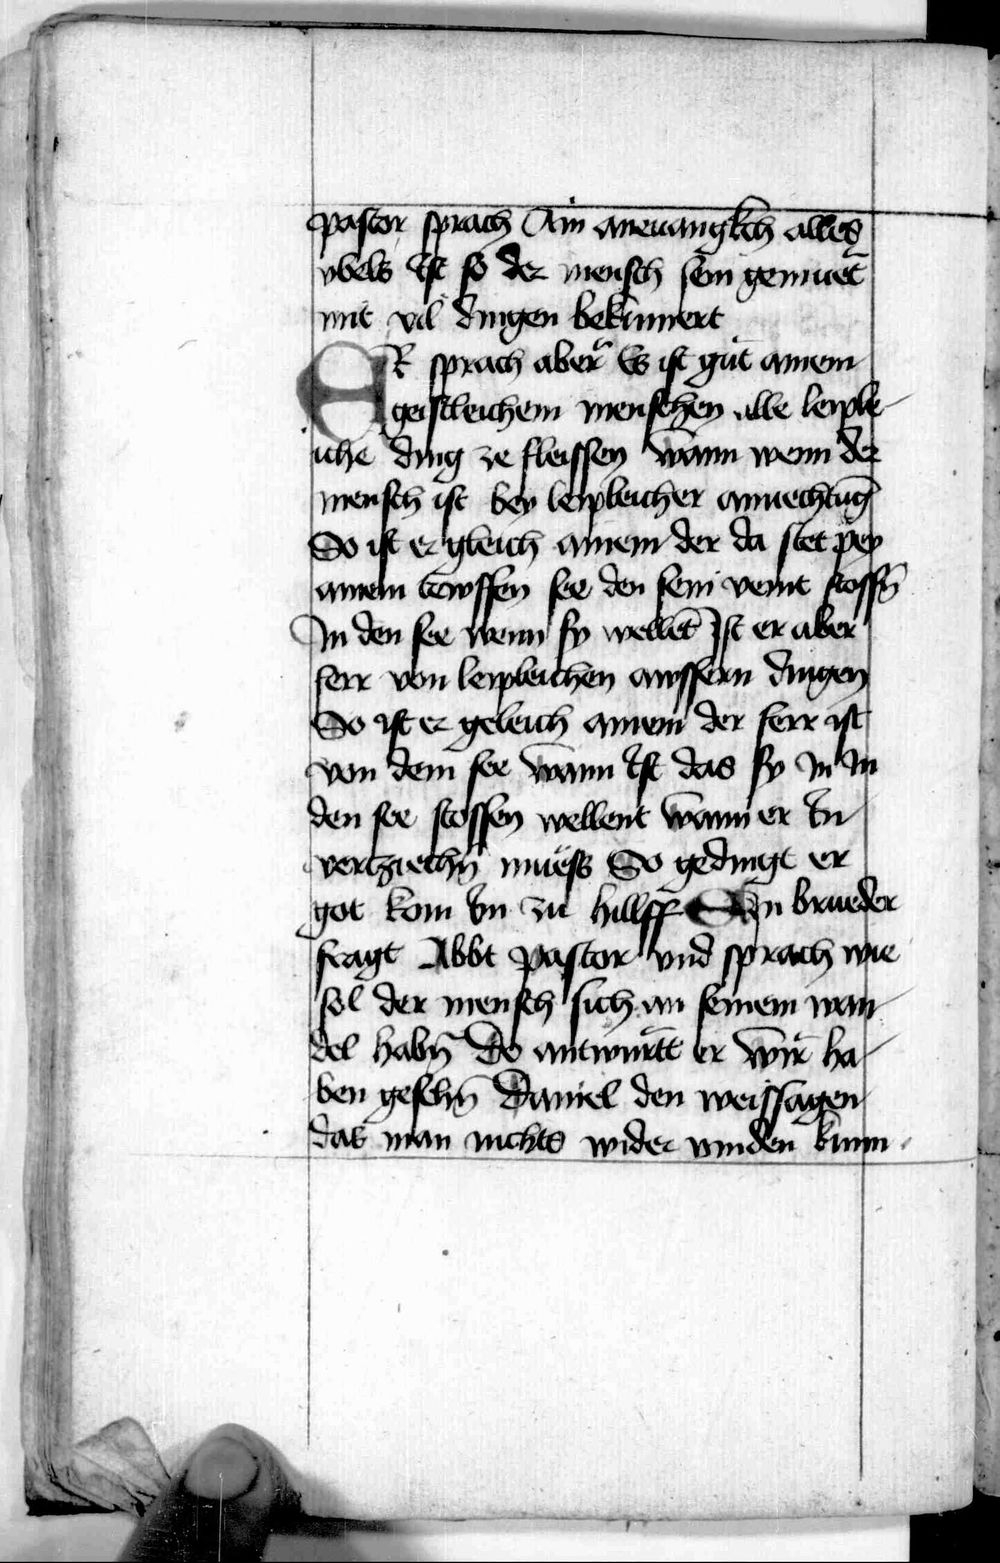 pastor sprach Ain anevangkch alles
vbels Ist so der mensch sein gemuet
mit vil dingen bekumert
ER sprach aber Es ist gut ainem
geistleichem menschen alle leiple-
iche ding ze fleissen Wann wenn der
mensch ist bey leipleicher anuechtuḡ
So ist er gleich ainem der da stet pey
ainem tewffen see den sein veint stossn̄
In den see wenn sy wellet̄ Ist er aber
ferr von leipleichen awssern dingen
So ist er geleich ainem der ferr ist
von dem see Wann Ist das sy In In
den see stossen wellent Wann er In
verziechn̄ muess So gedingt er
got kom Im zu hillff Ein brueder
fragt Abbt pastor vnd sprach wie
sol der mensch sich an seinem wan-
del habn̄ Do antwurtt er Wir ha-
ben gesehn̄ Daniel den weissagen
das man nichts wider vinden kunn